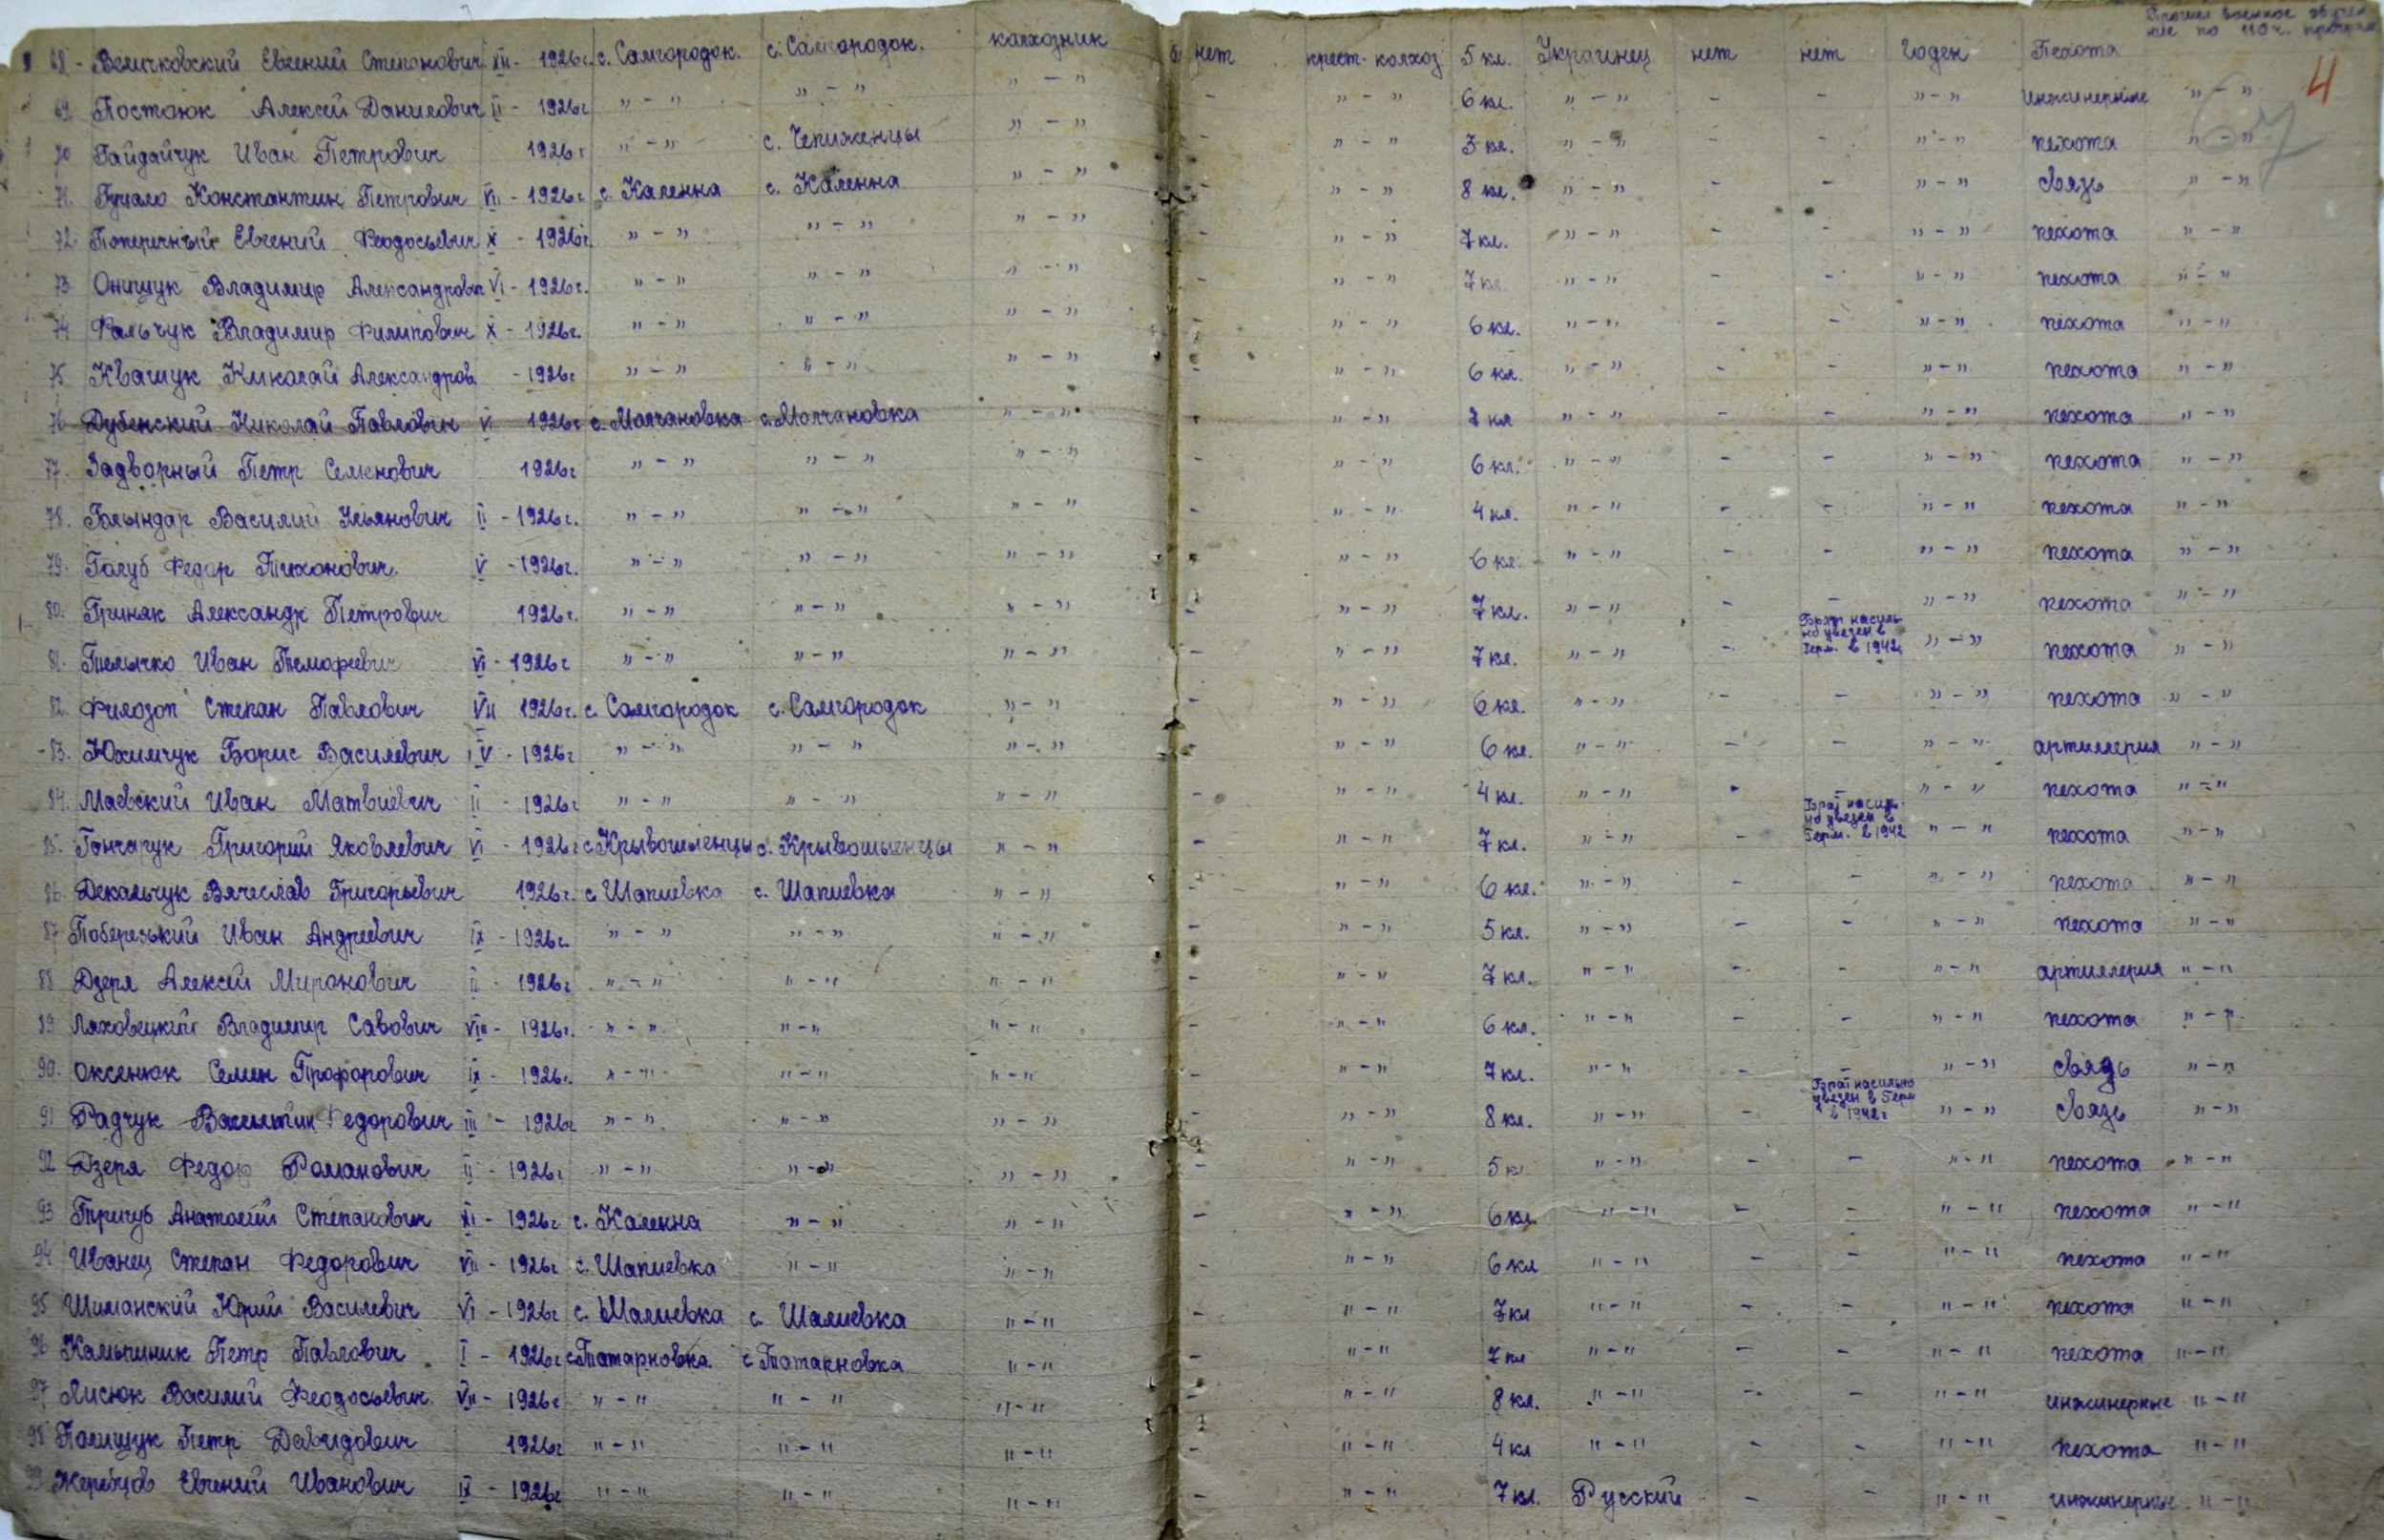 Прошел военное обучен-
ние по 110 ч. програм
4
68 - Величковский Евгений Степанович XII - 1926 г. с. Самгородок. с. Самгородок. колхозник б/ нет крест-колхоз 5 кл. Украинец нет нет Годен Пехота
69 Постоюк Алексей Данилович II - 1926 г " - " " - " " - " - " - " 6 кл. " - " - - " - " инженерные " - "
70 Гайдайчук Иван Петрович 1926 г " - " с. Чепиженцы " - " - " - " 3 кл. " - " - - " - " пехота " - "
71. Гуцало Константин Петрович VII - 1926 г с. Каленна с. Каленна " - " - " - " 8 кл. " - " - - " - " связь " - "
72 Поперечный Евгений Феодосьевич X - 1926 г. " - " " - " " - " - " - " 7 кл. " - " - - " - " пехота " - "
73 Онищук Владимир Александрович VI - 1926 г. " - " " - " " - " - " - " 7 кл. " - " - - " - " пехота " - "
74 Фальчук Владимир Филипович X - 1926 г. " - " " - " " - " - " - " 6 кл. " - " - - " - " пехота " - "
75 Квашук Николай Александров. - 1926 г " - " " - " " - " - " - " 6 кл. " - " - - " - " пехота " - "
76 Дубенский Николай Павлович VI 1926 г с. Молчановка с. Молчановка " - " - " - " 7 кл " - " - - " - " пехота " - "
77. Задворный Петр Семенович 1926 г " - " " - " " - " - " - " 6 кл. " - " - - " - " пехота " - "
78. Болындар Василий Ульянович II - 1926 г. " - " " - " " - " - " - " 4 кл. " - " - - " - " пехота " - "
79. Голуб Федор Тихонович V - 1926 г. " - " " - " " - " - " - " 6 кл. " - " - - " - " пехота " - "
80. Гриняк Александр Петрович 1926 г. " - " " - " " - " - " - " 7 кл. " - " - - " - " пехота " - "
81. Телычко Иван Тимофеевич VI - 1926 г " - " " - " " - " - " - " 7 кл. " - " - Брат насиль но увезен в Герм. в 1942 " - " пехота " - "
82. Филозоп Степан Павлович VII 1926 г. с. Самгородок с. Самгородок " - " - " - " 6 кл. " - " - - " - " пехота " - "
83. Юхимчук Борис Василевич IV - 1926 г " - " " - " " - " - " - " 6 кл. " - " - - " - " артиллерия " - "
84. Маевский Иван Матвиевич II - 1926 г " - " " - " " - " - " - " 4 кл. " - " - - " - " пехота " - "
85. Гончарук Григорий Яковлевич VI - 1926 г с. Крывошыенцы с. Крывошыенцы " - " - " - " 7 кл. " - " - Брат насиль- но увезен в Герм. в 1942 " - " пехота " - "
86. Декальчук Вячеслав Григорьевич 1926 г. с Шапиевка с. Шапиевка " - " - " - " 6 кл. " - " - - " - " пехота " - "
87 Побережький Иван Андреевич IX - 1926 г. " - " " - " " - " - " - " 5 кл. " - " - - " - " пехота " - "
88 Дзеря Алексей Миронович II - 1926 г " - " " - " " - " - " - " 7 кл. " - " - - " - " артиллерия " - "
89 Ляховецкий Владимир Савович VIII - 1926 г. " - " " - " " - " - " - " 6 кл. " - " - - " - " пехота " - "
90. Оксенюк Семен Профорович IX - 1926 г. " - " " - " " - " - " - " 7 кл. " - " - - " - " связь " - "
91 Радчук Валентин Федорович III - 1926 г " - " " - " " - " - " - " 8 кл. " - " - Брат насильно увезен в Герм в 1942 г " - " связь " - "
92 Дзеря Федор Романович II - 1926 г " - " " - " " - " - " - " 5 кл " - " - - " - " пехота " - "
93 Тричуб Анатолий Степанович XI - 1926 г с. Каленна " - " " - " - " - " 6 кл. " - " - - " - " пехота " - "
94 Иванец Степан Федорович VII - 1926 г с. Шапиевка " - " " - " - " - " 6 кл " - " - - " - " пехота " - "
95 Шиманский Юрий Василевич VI - 1926 г с. Шалиевка с. Шалиевка " - " - " - " 7 кл " - " - - " - " пехота " - "
96 Калынник Петр Павлович I - 1926 г с Татарновка с Татарновка " - " - " - " 7 кл " - " - - " - " пехота " - "
97 Лисюк Василий Феодосьевич VII - 1926 г " - " " - " " - " - " - " 8 кл. " - " - - " - " инженерные " - "
98 Полищук Петр Давидович 1926 г " - " " - " " - " - " - " 4 кл " - " - - " - " пехота " - "
99 Жеребцов Евгений Иванович IX - 1926 г " - " " - " " - " - " - " 7 кл. Русский - - " - " инженерные " - "